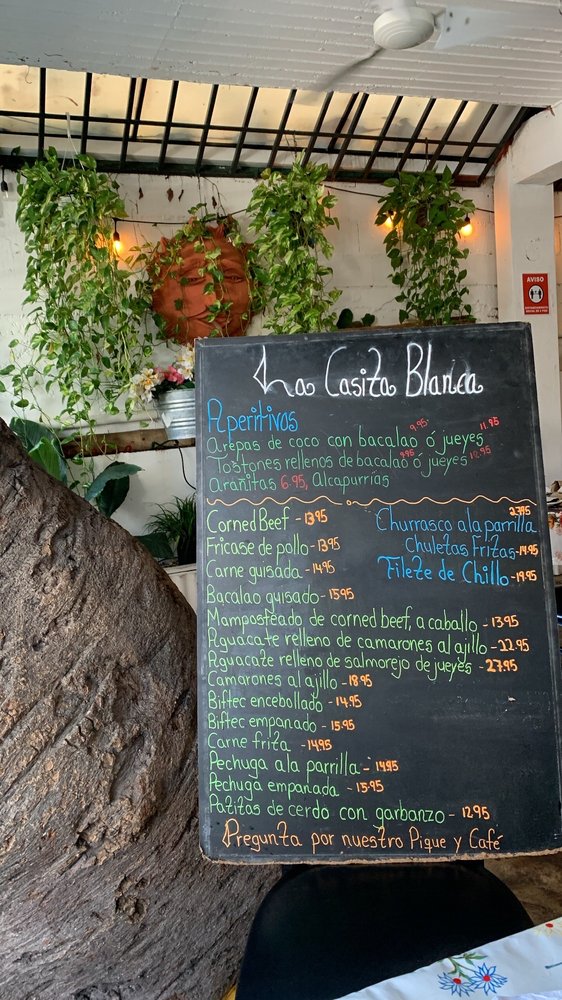 AVISO
La Casita Blanca
Aperitivos
Arepas de coco con bacalao 9.95 ó jueyes 11.95
Tostones rellenos de bacalao 9.95 ó jueyes 12.95
Arañitas 6.95, Alcapurrías
Corned Beef - 13.95
Fricase de pollo - 13.95
Carne guisada - 14.95
Bacalao guisado - 15.95
Churrasco a la parrilla 27.95
Chuletas Fritas - 14.95
Filete de Chillo - 19.95
Mamposteado de corned beef, a caballo - 13.95
Aguacate relleno de camarones al ajillo - 22.95
Aguacate relleno de salmorejo de jueyes - 27.95
Camarones al ajillo - 18.95
Biftec encebollado - 14.95
Biftec empanado - 15.95
Carne frita - 14.95
Pechuga a la parrilla - 14.95
Pechuga empanada - 15.95
Patitas de cerdo con garbanzo - 12.95
Pregunta por nuestro Pique y Café